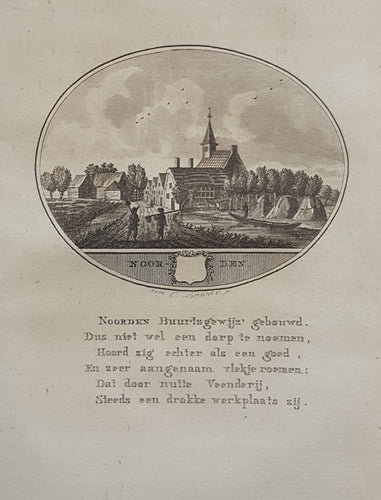 NOOR- DEN.
NOORDEN Buurtsgewijz' gebouwd.
Dus niet wel een dorp te noemen,
Hoord zig echter als een goed,
En zeer aangenaam vlekje roemen:
Dat door nutte Veenderij,
Steeds een drokke werkplaats zij.